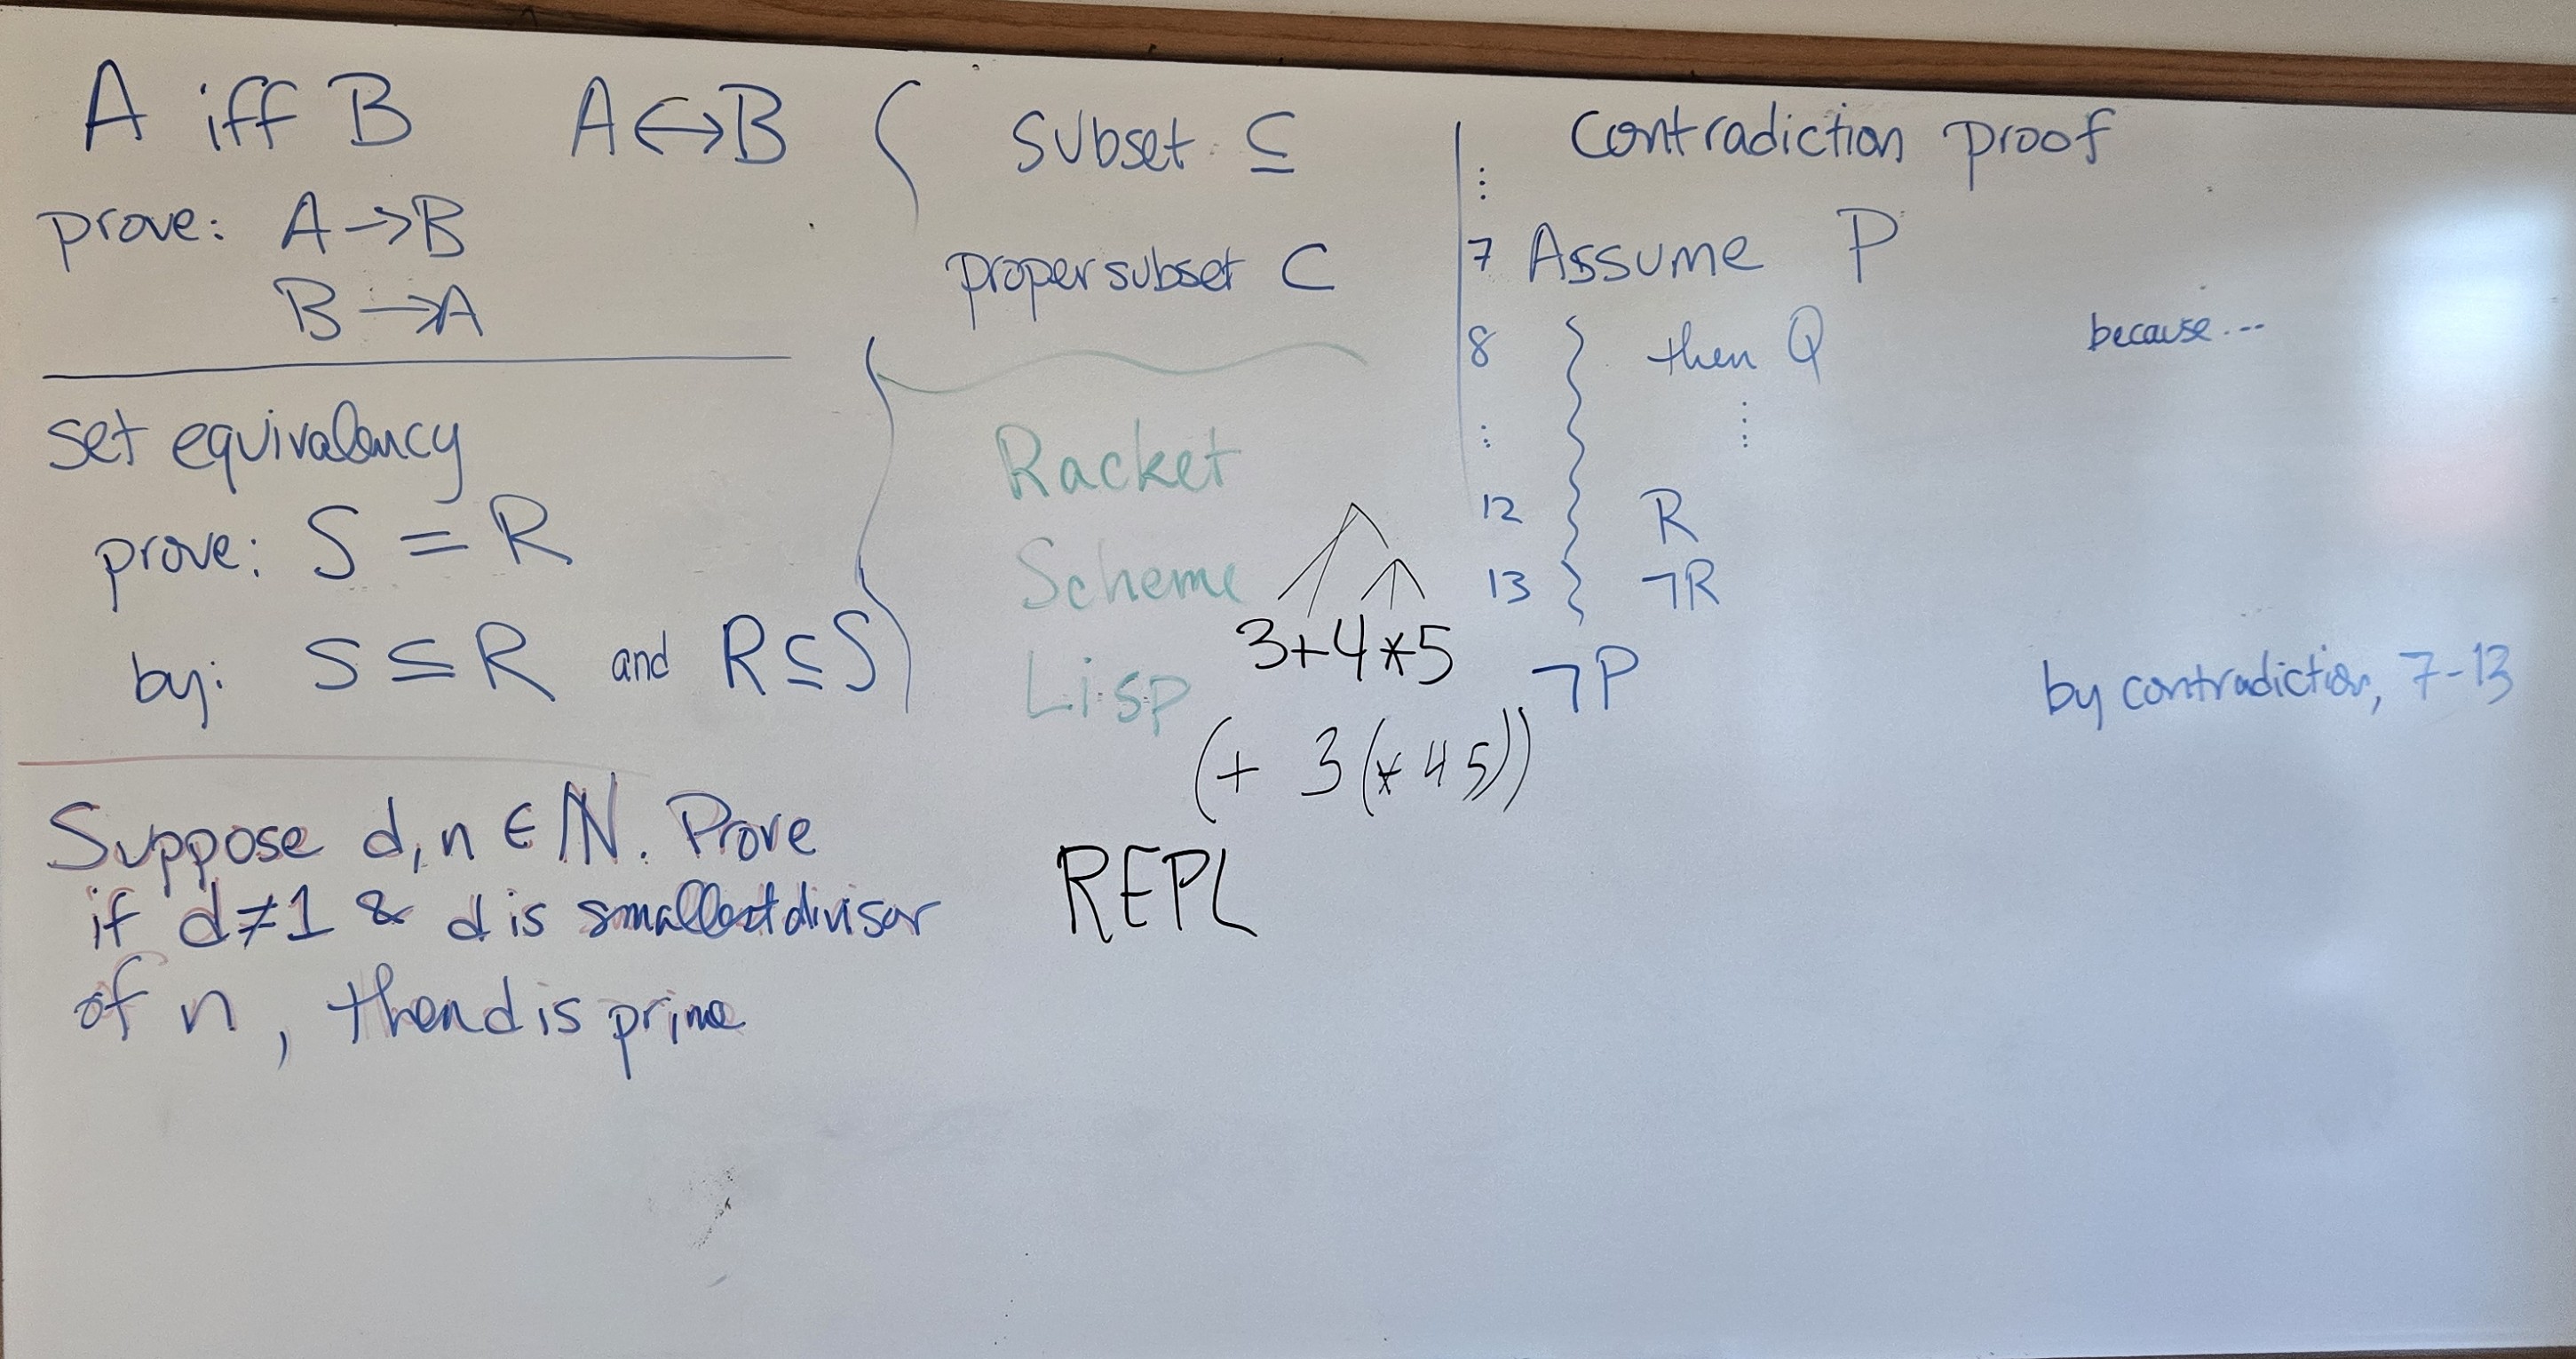 A iff B A↔B
prove: A→B
B→A
set equivalency
prove: S = R
by: S ⊆ R and R ⊆ S
Suppose d, n ∈ ℕ. Prove
if d≠1 & d is smallest divisor
of n, then d is prime
subset ⊆
proper subset ⊂
Racket
Scheme
Lisp
3+4*5
(+ 3 (* 4 5))
REPL
Contradiction proof
⋮
7 Assume P
8 then Q because...
⋮ ⋮
12 R
13 ¬R
¬P by contradiction, 7-13